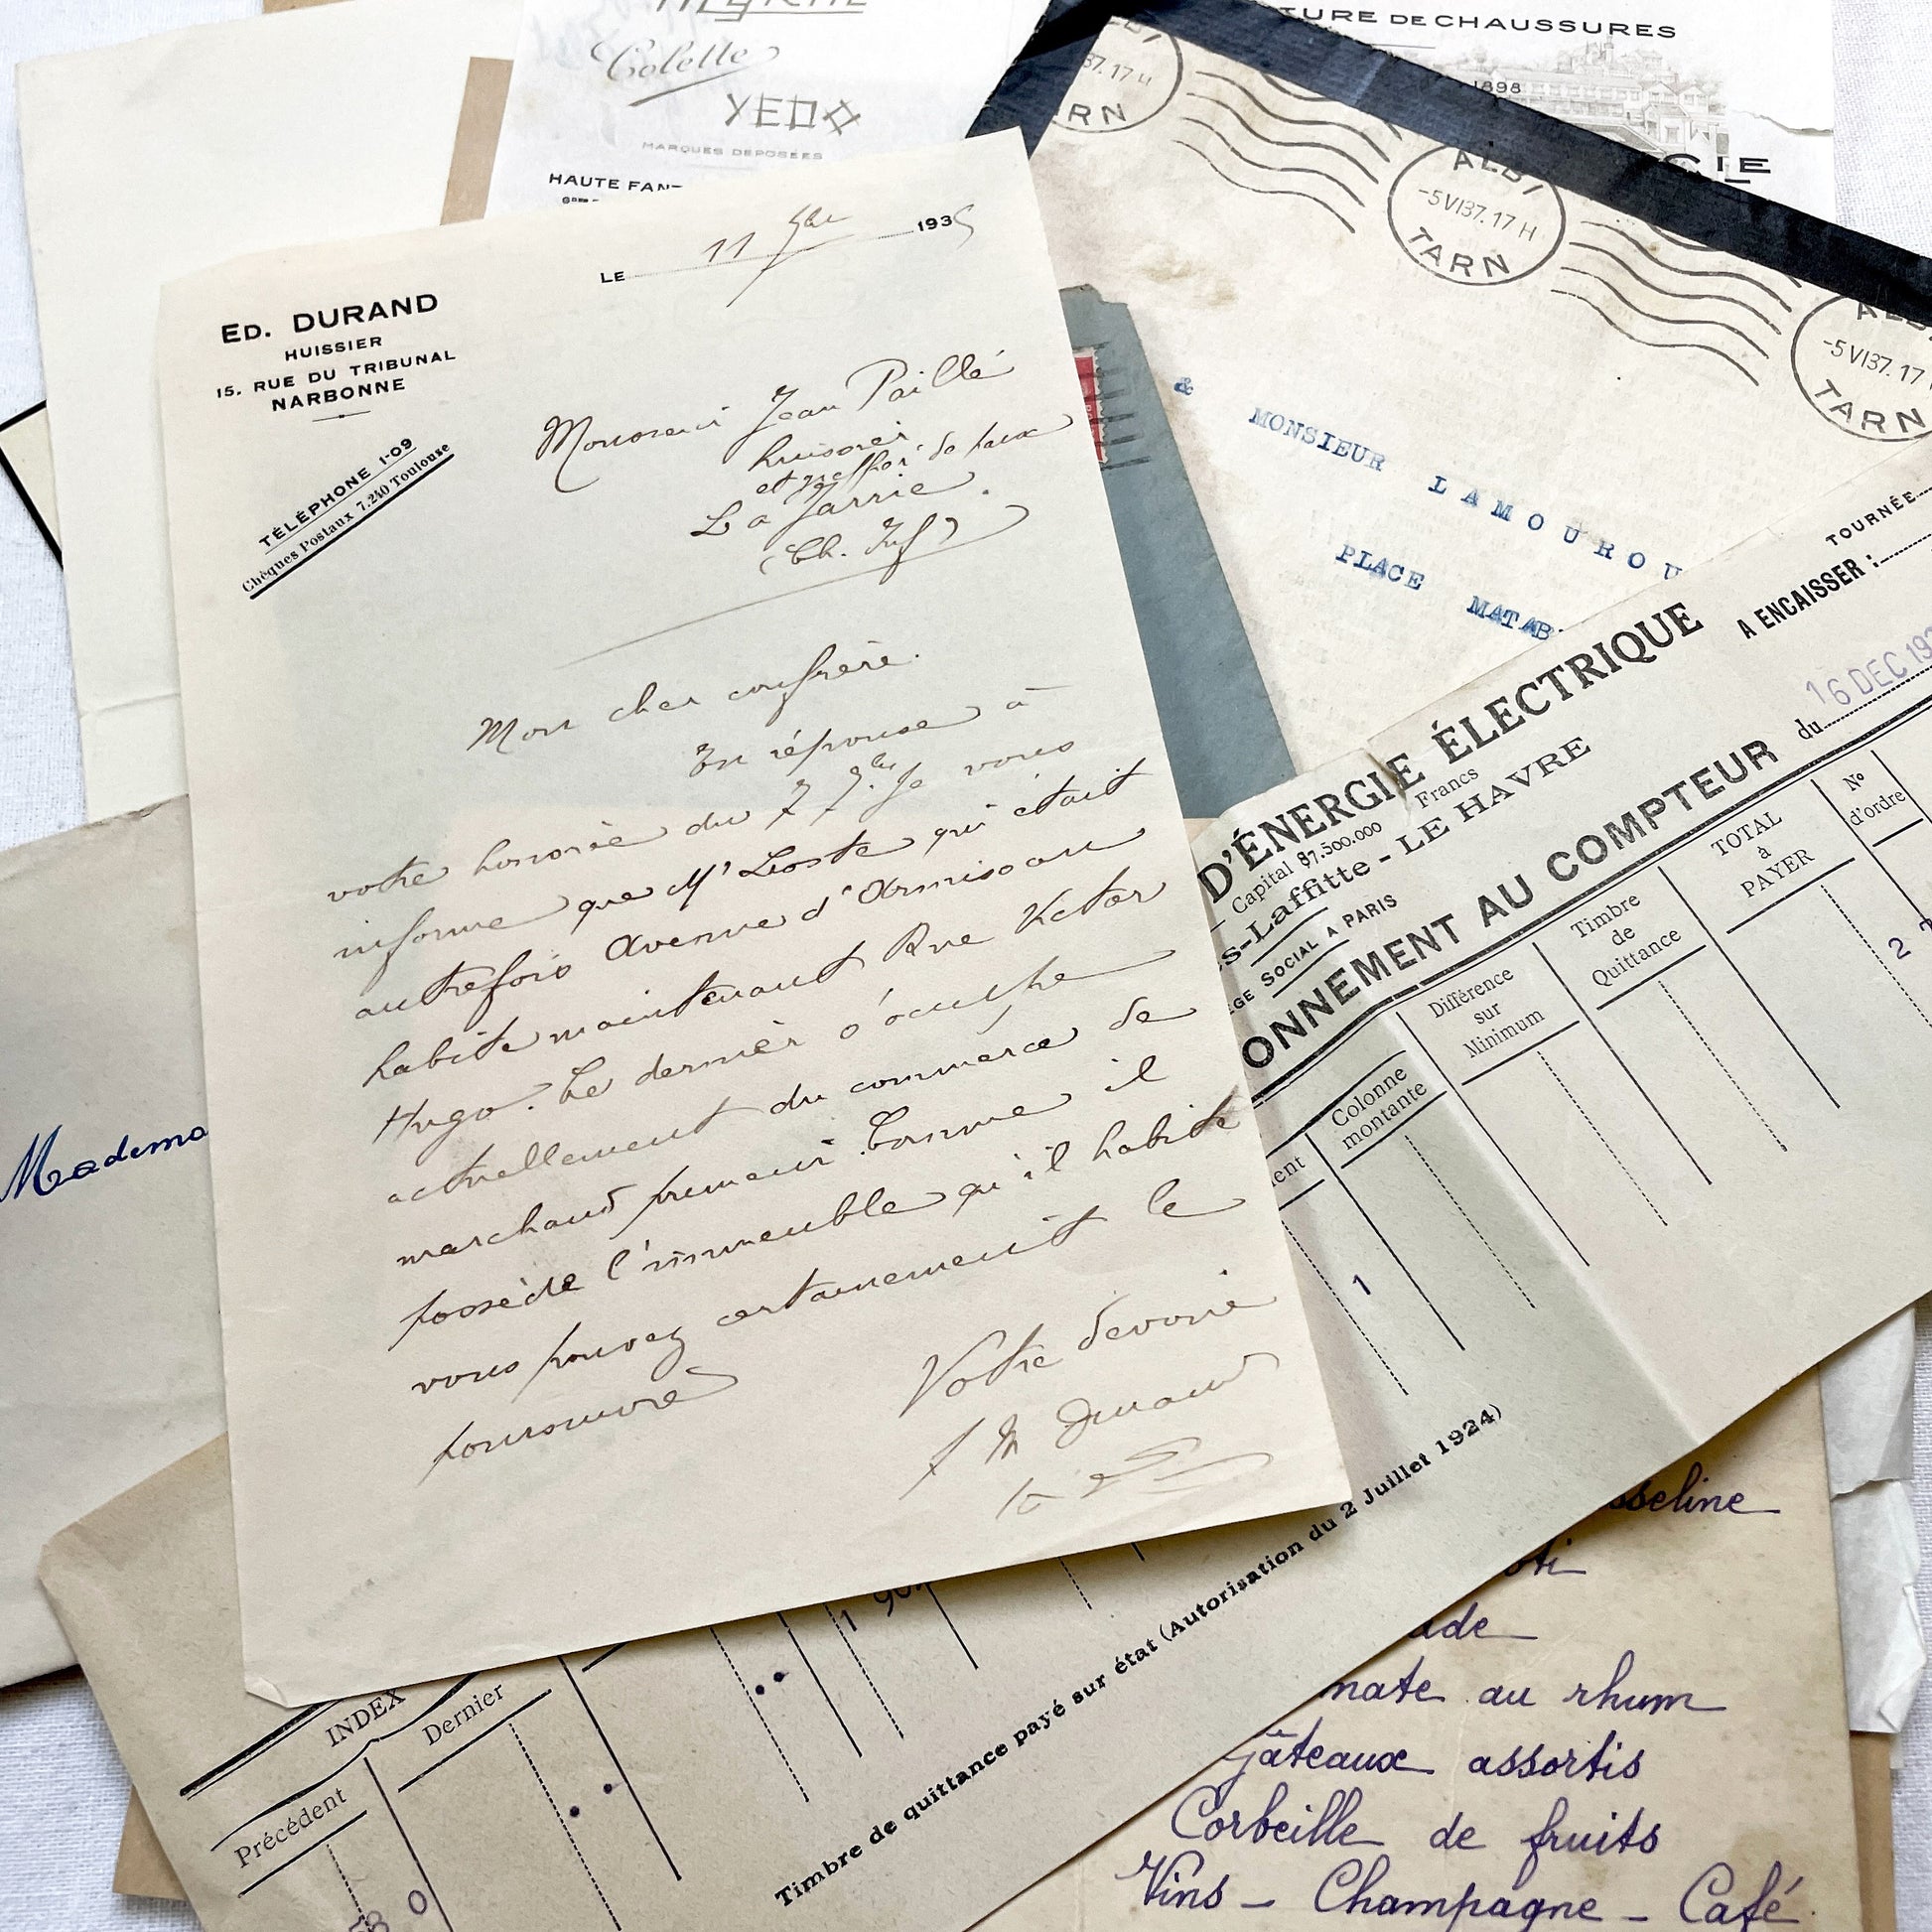 Colette
YEDO
MARQUES DEPOSÉES
HAUTE FAN
TURE DE CHAUSSURES
1898
CIE
37.17 H
RN
ALBI
-5 VI 37. 17 H
TARN
-5 VI 37. 17
TARN
& MONSIEUR LAMOUROU
PLACE MATAB
LE 11 9bre 1935
ED. DURAND
HUISSIER
15, RUE DU TRIBUNAL
NARBONNE
TÉLÉPHONE 1-09
Chèques Postaux 7.240 Toulouse
Monsieur Jean Paillé
huissier
et greffier de paix
La Jarrie.
(Ch. Inf)
Mon cher confrère.
En réponse à
votre honorée du 7 Je vous
informe que Mr Lioste qui était
autrefois Avenue d'Armissan
habite maintenant Rue Victor
Hugo. Ce dernier s'occupe
actuellement du commerce de
marchand primeur. Comme il
possède l'immeuble qu'il habite
vous pouvez certainement le
poursuivre
Votre dévoué
Durand
Mademo
TOURNÉE
A ENCAISSER :
du 16 DEC 19
D'ÉNERGIE ÉLECTRIQUE
Capital 87.500.000 Francs
s-Laffitte - LE HAVRE
GE SOCIAL A PARIS
ONNEMENT AU COMPTEUR
ent
Colonne montante
Différence sur Minimum
Timbre de Quittance
TOTAL à PAYER
N° d'ordre
1
2
1 90
INDEX
Précédent
Dernier
0
Timbre de quittance payé sur état (Autorisation du 2 Juillet 1924)
sseline
ti
ade
nate au rhum
Gâteaux assortis
Corbeille de fruits
Vins - Champagne - Café.